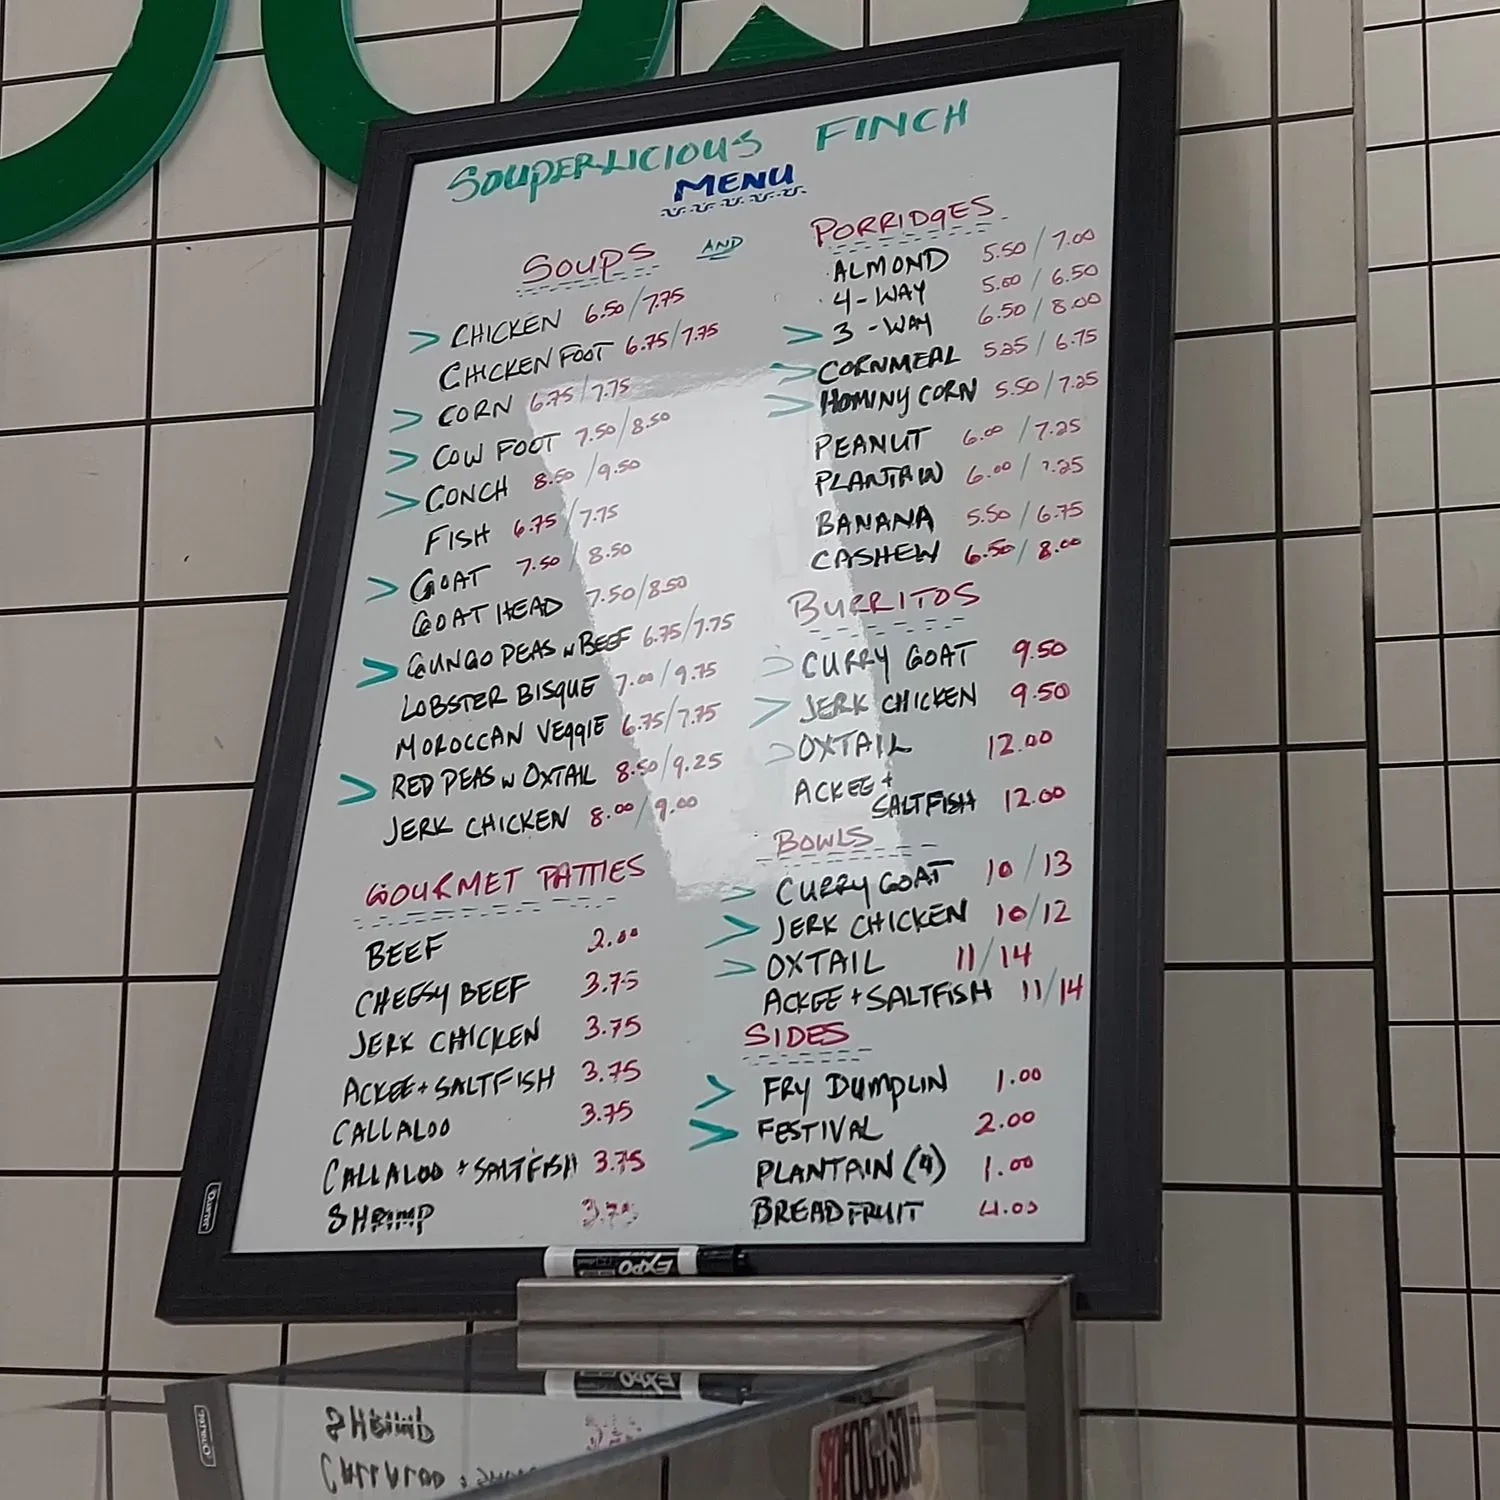 SOUPERLICIOUS FINCH
MENU
SOUPS AND
CHICKEN 6.50/7.75
CHICKEN FOOT 6.75/7.75
> CORN 6.75/7.75
> COW FOOT 7.50/8.50
> CONCH 8.50/9.50
FISH 6.75/7.75
> GOAT 7.50/8.50
GOAT HEAD 7.50/8.50
> GUNGO PEAS W BEEF 6.75/7.75
LOBSTER BISQUE 7.00/9.75
MOROCCAN VEGGIE 6.75/7.75
> RED PEAS W OXTAIL 8.50/9.25
JERK CHICKEN 8.00/9.00
GOURMET PATTIES
BEEF 2.00
CHEESY BEEF 3.75
JERK CHICKEN 3.75
ACKEE + SALTFISH 3.75
CALLALOO 3.75
CALLALOO + SALTFISH 3.75
SHRIMP 3.75
PORRIDGES
ALMOND 5.50/7.00
4-WAY 5.00/6.50
> 3-WAY 6.50/8.00
> CORNMEAL 5.25/6.75
> HOMINY CORN 5.50/7.25
PEANUT 6.00/7.25
PLANTAIN 6.00/7.25
BANANA 5.50/6.75
CASHEW 6.50/8.00
BURRITOS
> CURRY GOAT 9.50
> JERK CHICKEN 9.50
> OXTAIL 12.00
ACKEE +
SALTFISH 12.00
BOWLS
> CURRY GOAT 10/13
> JERK CHICKEN 10/12
> OXTAIL 11/14
ACKEE + SALTFISH 11/14
SIDES
> FRY DUMPLIN 1.00
> FESTIVAL 2.00
PLANTAIN (4) 1.00
BREADFRUIT 4.00
QUARTET
EXPO
SEAFOOD SOUP